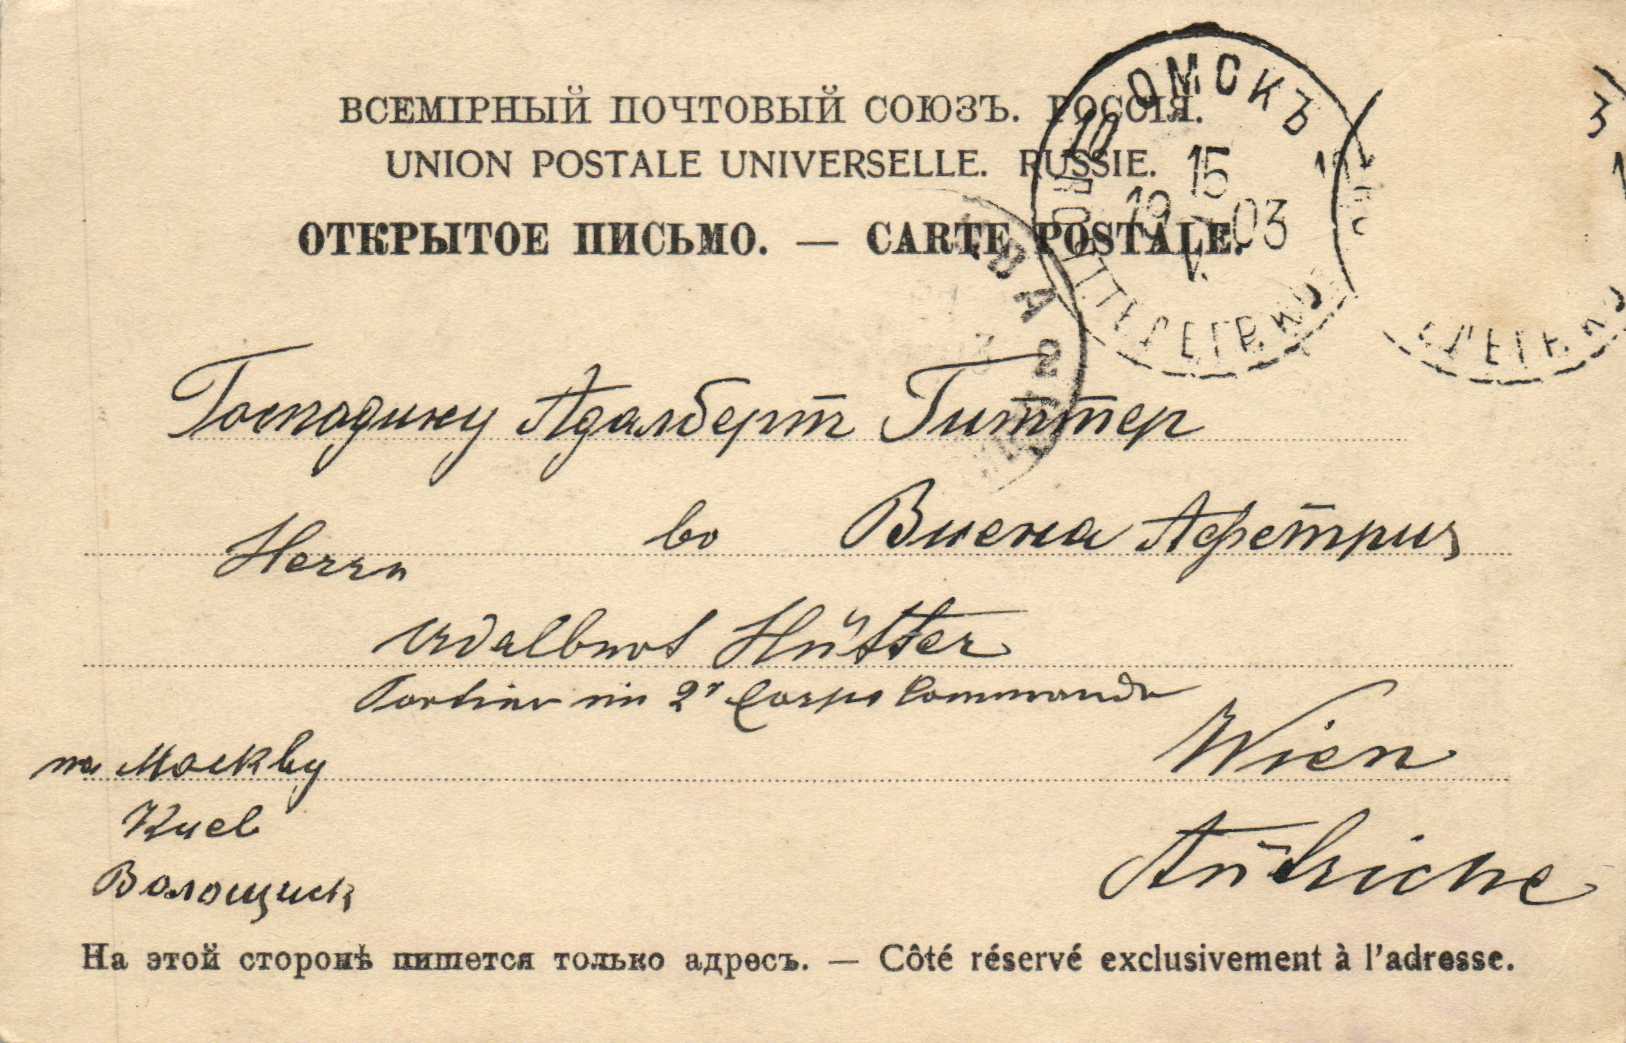 ВСЕМІРНЫЙ ПОЧТОВЫЙ СОЮЗЪ. РОССІЯ.
UNION POSTALE UNIVERSELLE. RUSSIE.
ОТКРЫТОЕ ПИСЬМО. — CARTE POSTALE.
ОМСКЪ
10
15
19 03
V
ПОЧТ ТЕЛЕГР. КО
3
ЕЛЕГР. КО
ВА
2
Господину Адалберт Гиттер
во Виена Афетрия
Herrn
Adalbert Hütter
Portier im 2r Corps Commando
Wien
на Москву
Киев
Волощиск
Autriche
На этой сторонѣ пишется только адресъ. — Côté réservé exclusivement à l'adresse.